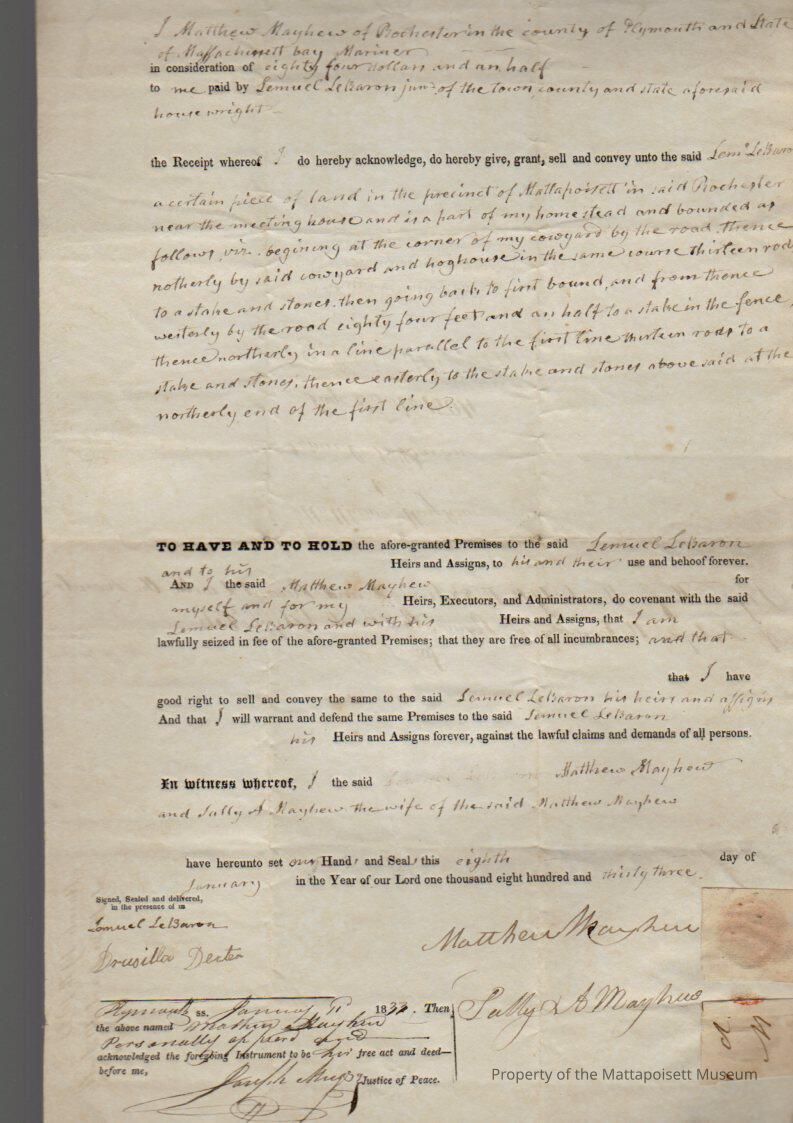 I Matthew Mayhew of Rochester in the county of Plymouth and State
of Massachusett bay Mariner
in consideration of eighty four dollars and an half
to me paid by Lemuel LeBaron junr of the town, county and state aforesaid
housewright
the Receipt whereof I do hereby acknowledge, do hereby give, grant, sell and convey unto the said Leml LeBaron
a certain piece of land in the precinct of Mattapoisett in said Rochester
near the meeting house and is a part of my homestead and bounded as
follows, viz. begining at the corner of my cowyard by the road, thence
notherly by said cowyard and hoghouse in the same course thirteen rod
to a stake and stones, then going back to first bound, and from thence
westerly by the road eighty four feet and an half to a stake in the fence,
thence northerly in a line parallel to the first line thirteen rods to a
stake and stones, thence easterly to the stake and stones above said at the
northerly end of the first line.
TO HAVE AND TO HOLD the afore-granted Premises to the said Lemuel LeBaron
and to his Heirs and Assigns, to his and their use and behoof forever.
AND I the said Matthew Mayhew for
myself and for my Heirs, Executors, and Administrators, do covenant with the said
Lemuel LeBaron and with his Heirs and Assigns, that I am
lawfully seized in fee of the afore-granted Premises; that they are free of all incumbrances; and that
that I have
good right to sell and convey the same to the said Lemuel LeBaron his heirs and assigns
And that I will warrant and defend the same Premises to the said Lemuel LeBaron
his Heirs and Assigns forever, against the lawful claims and demands of all persons.
In witness whereof, I the said Matthew Mayhew
and Sally A Mayhew the wife of the said Matthew Mayhew
have hereunto set our Hands and Seals this eighth day of
January in the Year of our Lord one thousand eight hundred and thirty three.
Signed, Sealed and delivered,
in the presence of us
Lemuel LeBaron
Drusilla Dexter
Matthew Mayhew
Sally A Mayhew
Plymouth ss. 1833. Then
the above named Matthew Mayhew
Personally appeard and
acknowledged the foregoing Instrument to be his free act and deed—
before me,
Joseph Justice of Peace.
Property of the Mattapoisett Museum